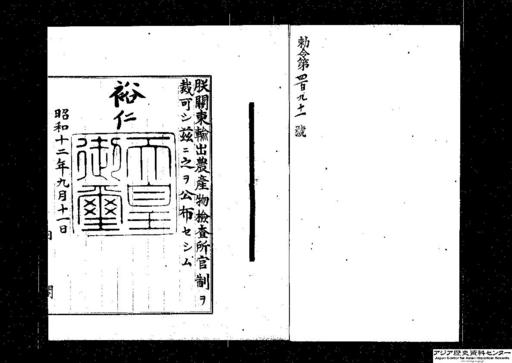 勅令第四百九十一號
朕關東輸出農産物檢査所官制ヲ
裁可シ茲ニ之ヲ公布セシム
裕仁
天皇御璽
昭和十二年九月十一日
内閣
アジア歴史資料センター
Japan Center for Asian Historical Records